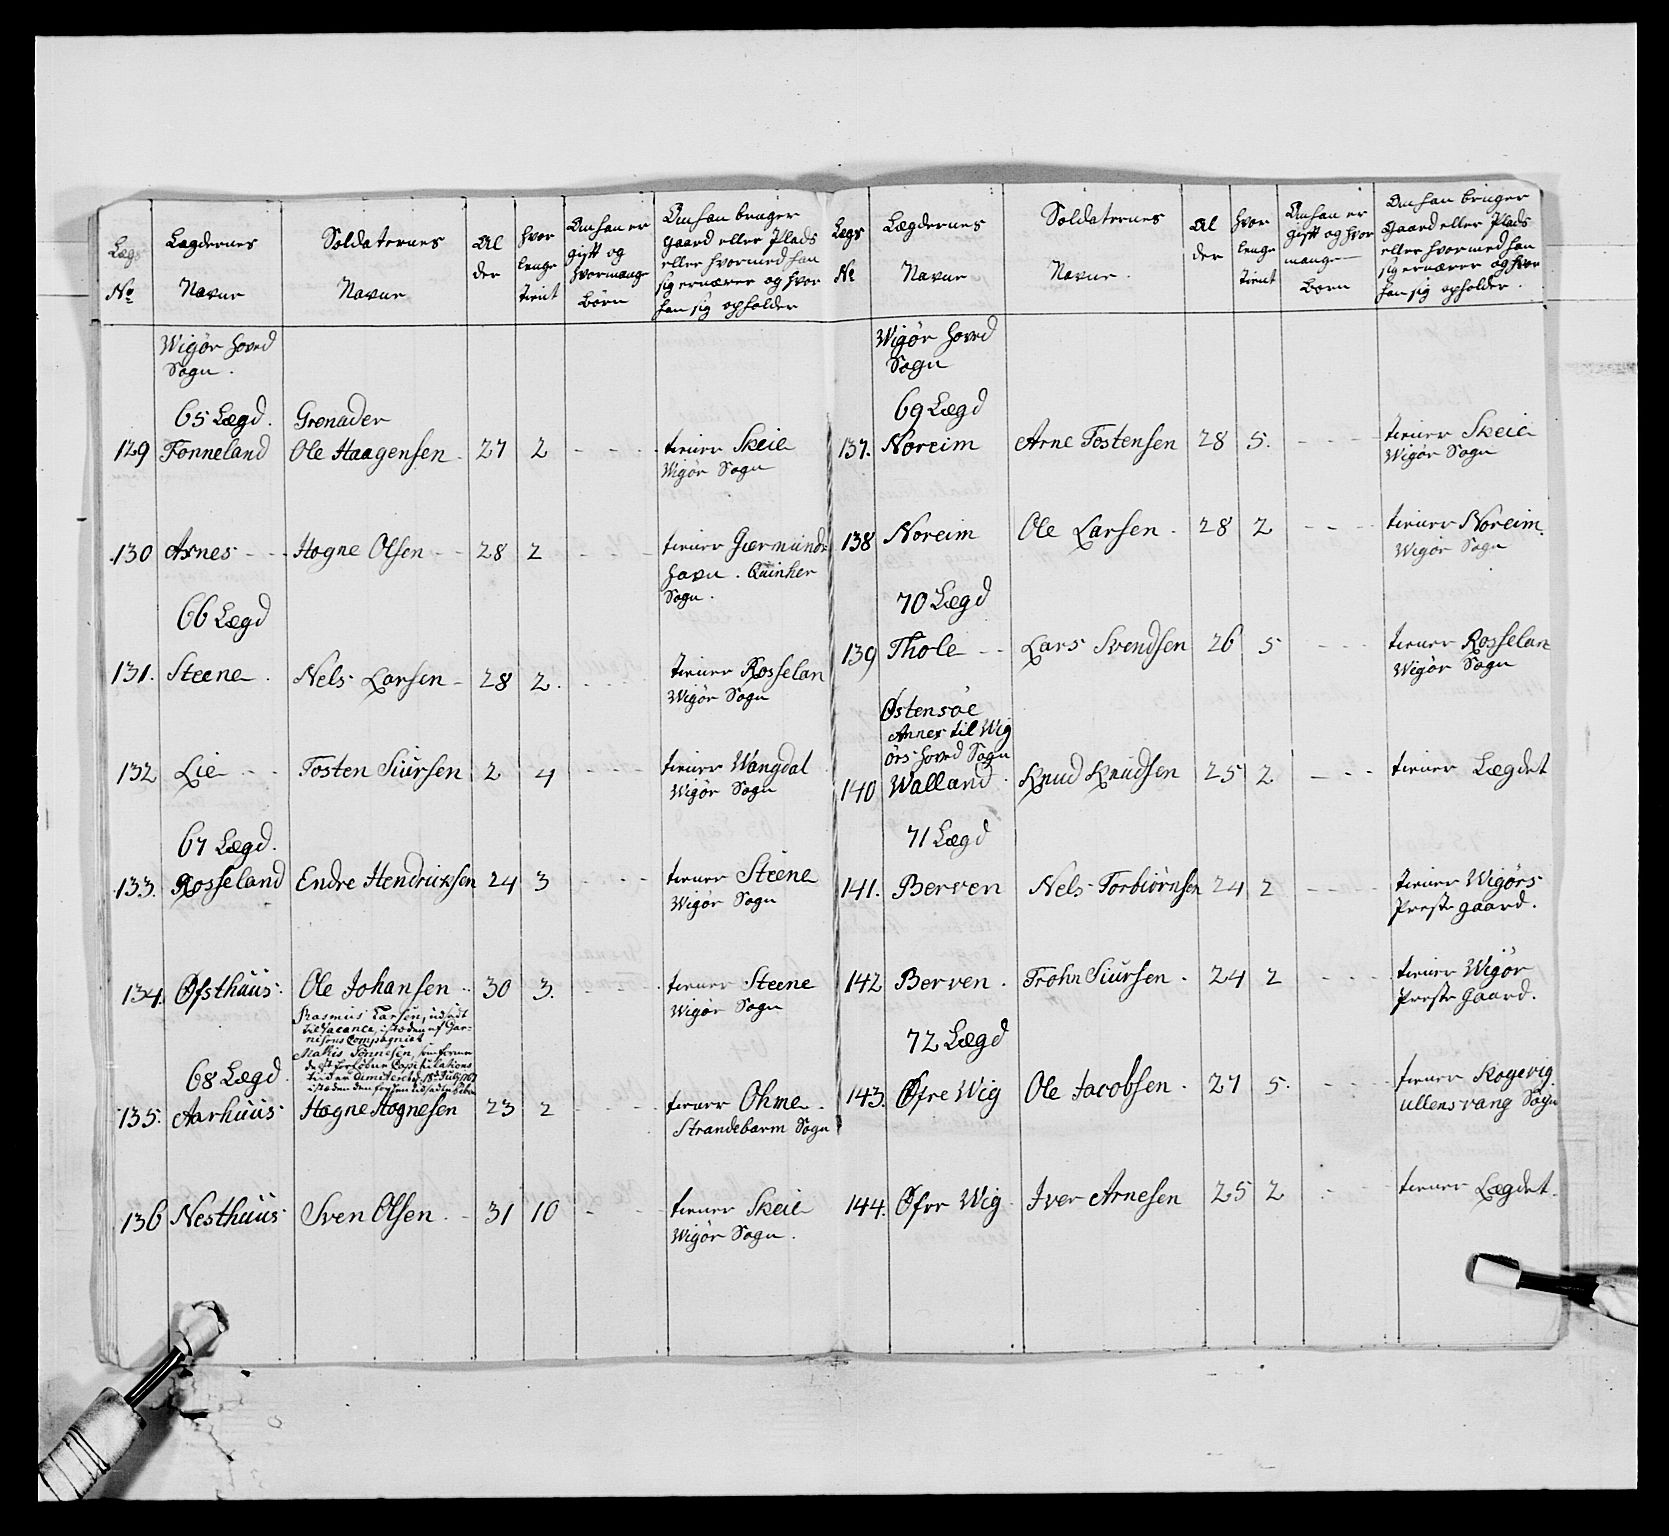 Lægs
No
Lægdernes
Navne
Soldaternes
Navne
Al
der
hvor
lenge
tient
Om han er
gift og
hvormange
Börn
Om han bruger
gaard eller Plads
eller hvormed han
sig ernærer og hvor
han sig opholder
Wigör hoved
Sogn.
65 Lægd. Grenader
129 Fonneland Ole Haagensen 27 2 - - - tiener Skeie
Wigör Sogn
130 Axnes - - Hogne Olsen - - 28 2 - - - tiener Giermunds
havn. Quinher
Sogn.
66 Lægd
131. Steene. Nels Larsen - 28 2. - - - tiener Rosselan
Wigör Sogn
132 Lie - - Tosten Siursen 2 4 - - - tiener Wangdal
Wigör Sogn
67 Lægd.
133. Rosseland Endre Hendriksen 24 3 - - - tiener Steene
Wigör Sogn
134. Øfsthuus. Ole Johansen 30 3. - - - tiener Steene
Wigör Sogn
Rasmus Larsen, udsadt
til vacance, isteden af Gar-
nisons Compagniet
68 Lægd.
135. Aarhuus Hogne Hognesen 23 2 - - - tiener Ohme.
Strandebarm Sogn
136 Nesthuus Sven Olsen. - 31 10 - - - tiener Skeie
Wigör Sogn.
Lægs
No
Lægdernes
Navne
Soldaternes
Navne.
Al
der
hvor
lenge
tient
Om han er
gift og hvor
mange
Börn
Om han bruger
gaard eller Plads
eller hvormed han
sig ernærer og hvor
han sig opholder.
Wigör hoved
Sogn
69 Lægd
137. Noreim Arne Tostensen 28 5. - - - tiener Skeie
Wigör Sogn
138 Noreim Ole Larsen. 28 2 - - - tiener Noreim.
Wigör Sogn
70 Lægd
139 Thole - - Lars Svendsen 26 5 - - - tiener Rosselan
Wigör Sogn
Østensøe
Annex til Wig
örs hoved Sogn
140 Walland. Knud Knudsen 25 2 - - - tiener Lægdet
71 Lægd
141. Berven Nels Torbiörnsen 24 2 - - - tiener Wigörs
Preste gaard.
142 Berven. Trohn Siursen. 24 2 - - - tiener Wigör
Preste Gaard.
72 Lægd
143. Øfre Wig Ole Jacobsen. 27 5. - - - tiener Kogevig
Ullensvang Sogn
144. Øfre Wig Iver Arnesen 25 2 - - - tiener Lægdet.